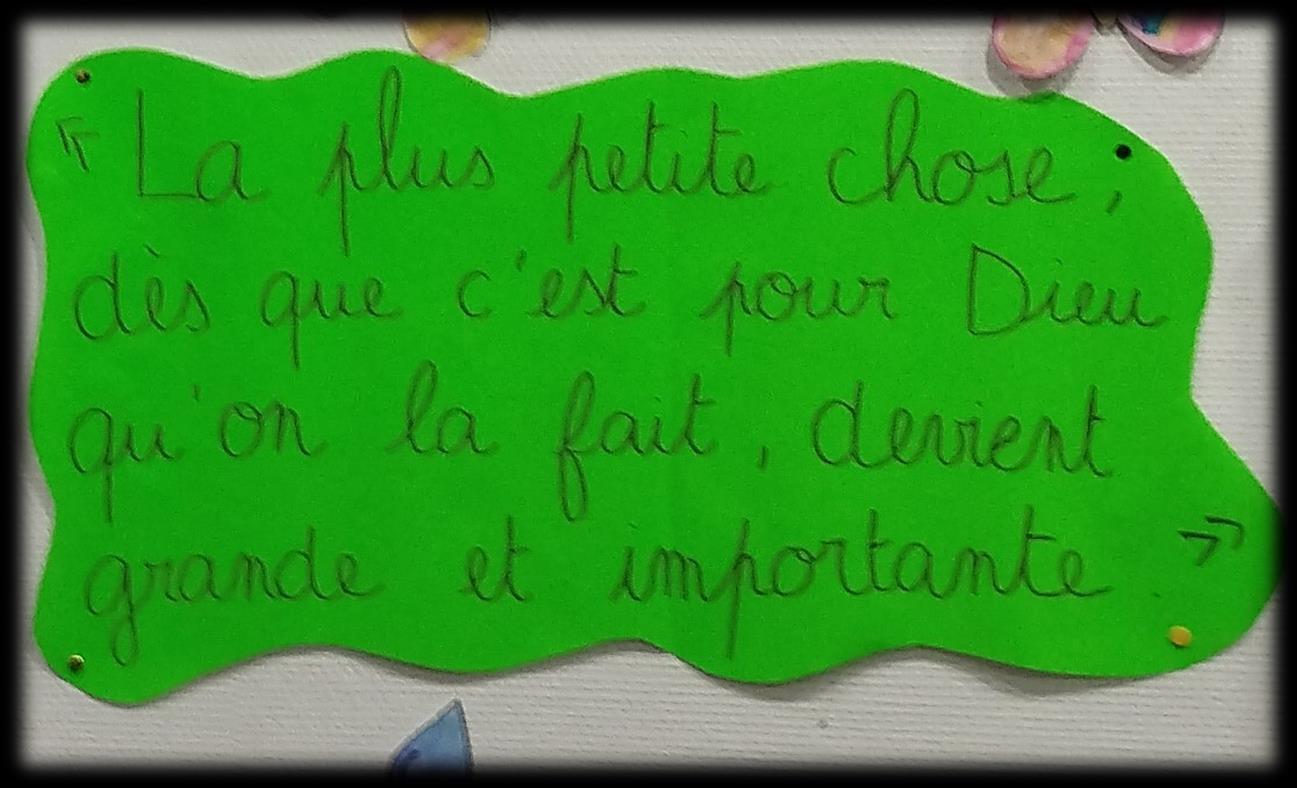 « La plus petite chose,
dès que c'est pour Dieu
qu'on la fait, devient
grande et importante. »